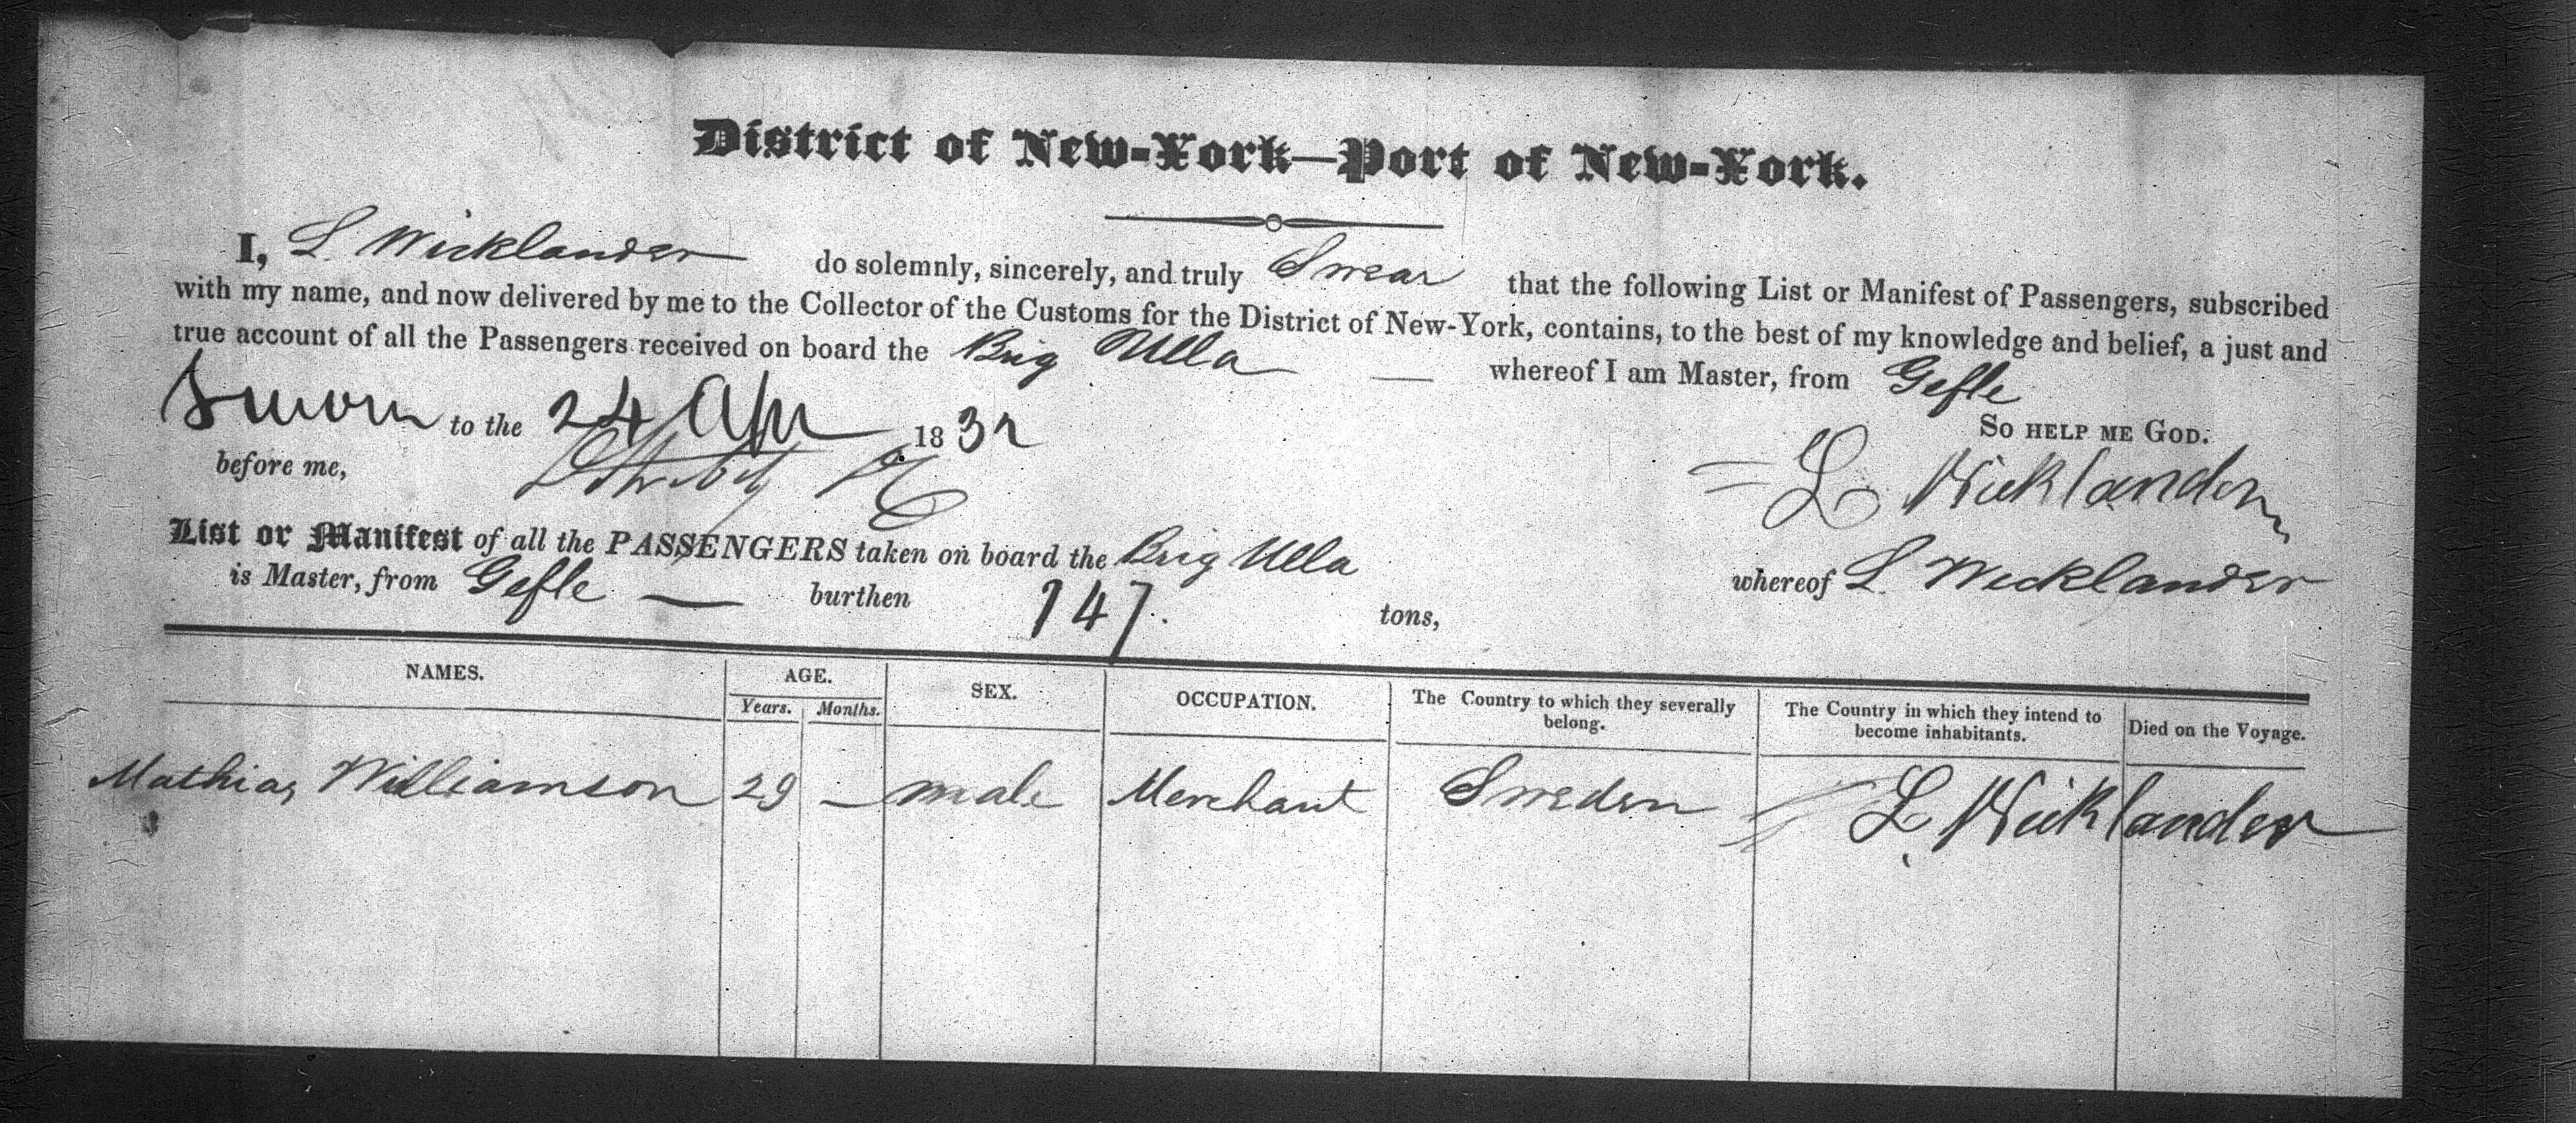 District of New-York—Port of New-York.
I, L. Wicklander do solemnly, sincerely, and truly Swear that the following List or Manifest of Passengers, subscribed
with my name, and now delivered by me to the Collector of the Customs for the District of New-York, contains, to the best of my knowledge and belief, a just and
true account of all the Passengers received on board the Brig Ulla — whereof I am Master, from Gefle
Sworn to the 24 Apr 1832
So help me God.
before me,
L Wicklander
List or Manifest of all the PASSENGERS taken on board the Brig Ulla whereof L. Wicklander
is Master, from Gefle — burthen 147. tons,
NAMES. AGE. SEX. OCCUPATION. The Country to which they severally belong. The Country in which they intend to become inhabitants. Died on the Voyage.
Years. Months.
Mathias Williamson 29 — male Merchant Sweden L Wicklander